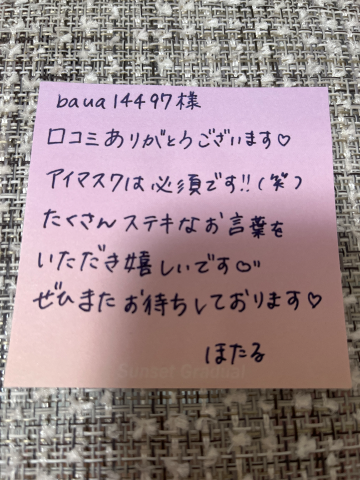 baua14497様
口コミありがとうございます♡
アイマスクは必須です!!(笑)
たくさんステキなお言葉を
いただき嬉しいです♡"
ぜひまたお待ちしております♡
ほたる
Sunset Gradual